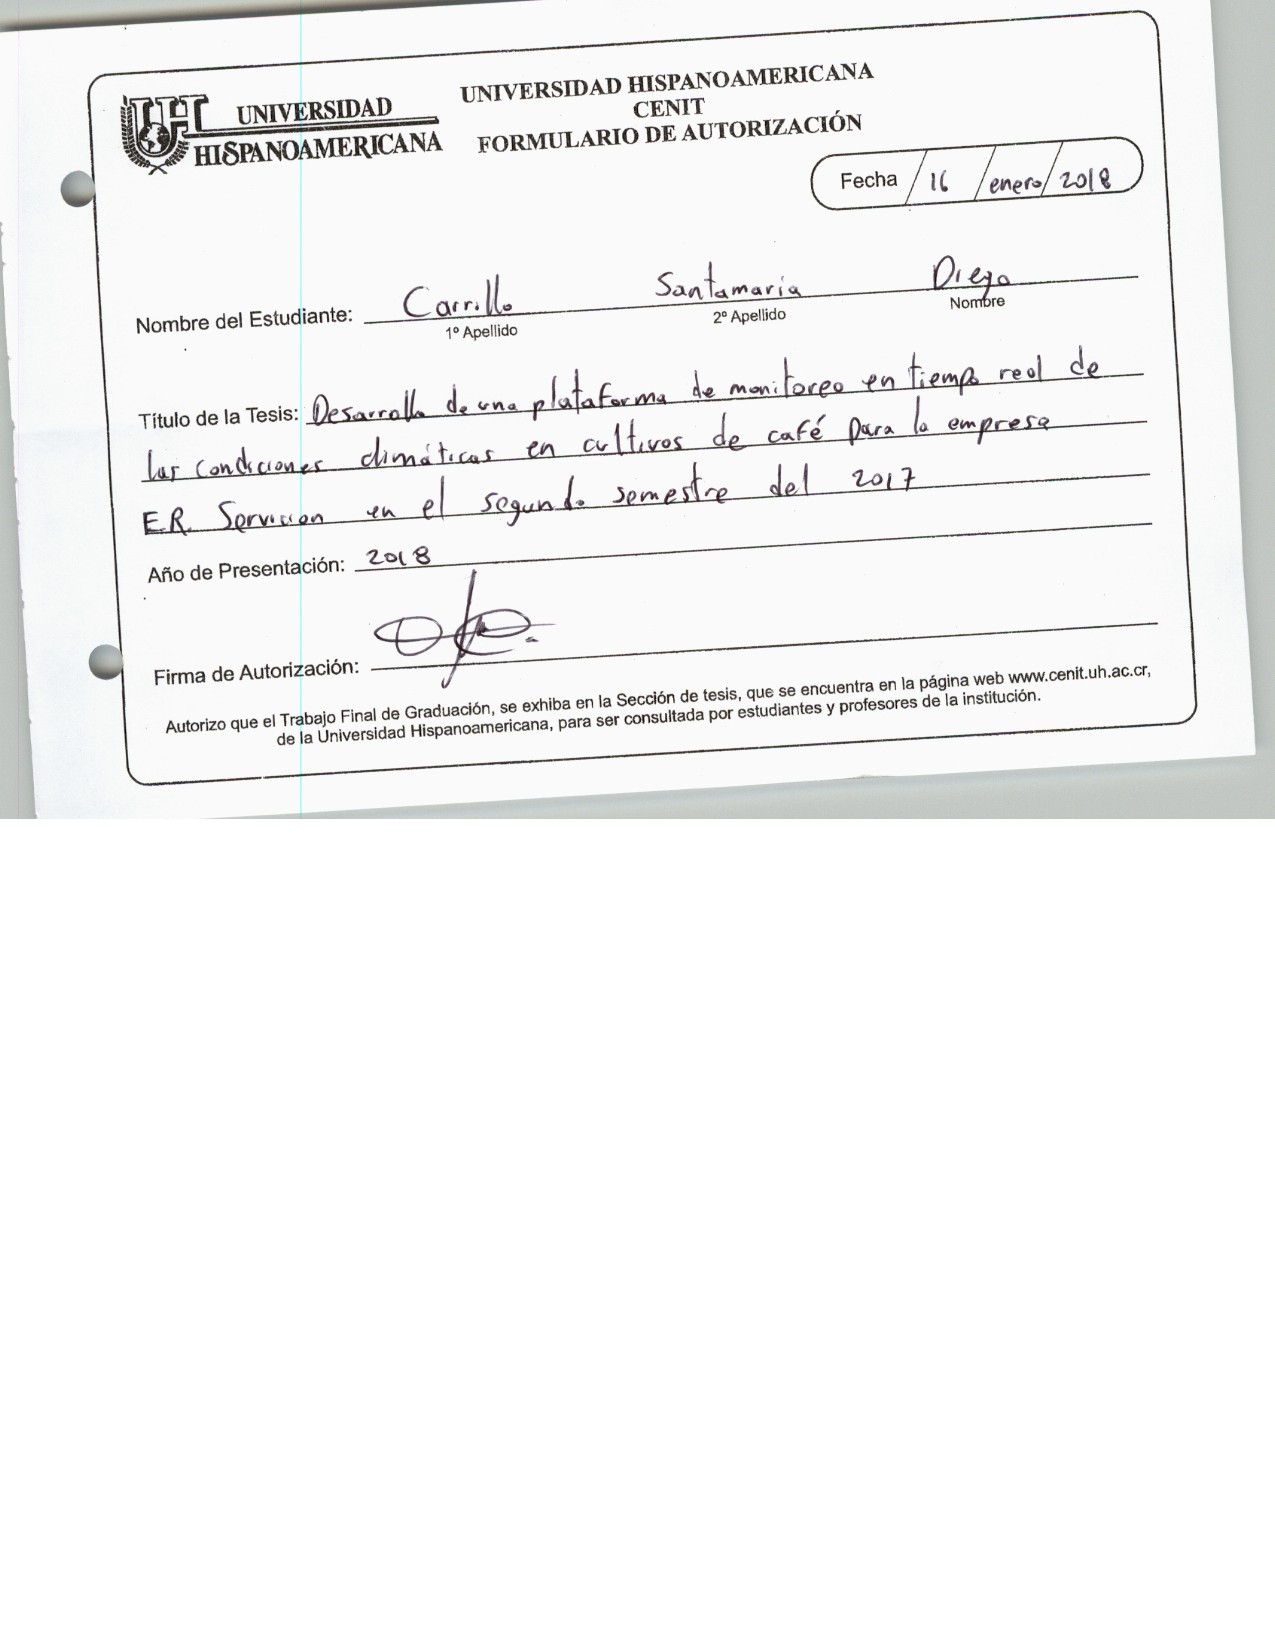 UNIVERSIDAD
HISPANOAMERICANA
UNIVERSIDAD HISPANOAMERICANA
CENIT
FORMULARIO DE AUTORIZACIÓN
Fecha / 16 / enero / 2018
Carrillo Santamaría Diego
Nombre del Estudiante:
1º Apellido 2º Apellido Nombre
Título de la Tesis: Desarrollo de una plataforma de monitoreo en tiempo real de
las condiciones climáticas en cultivos de café para la empresa
E.R. Servision en el segundo semestre del 2017
Año de Presentación: 2018
Firma de Autorización:
Autorizo que el Trabajo Final de Graduación, se exhiba en la Sección de tesis, que se encuentra en la página web www.cenit.uh.ac.cr,
de la Universidad Hispanoamericana, para ser consultada por estudiantes y profesores de la institución.